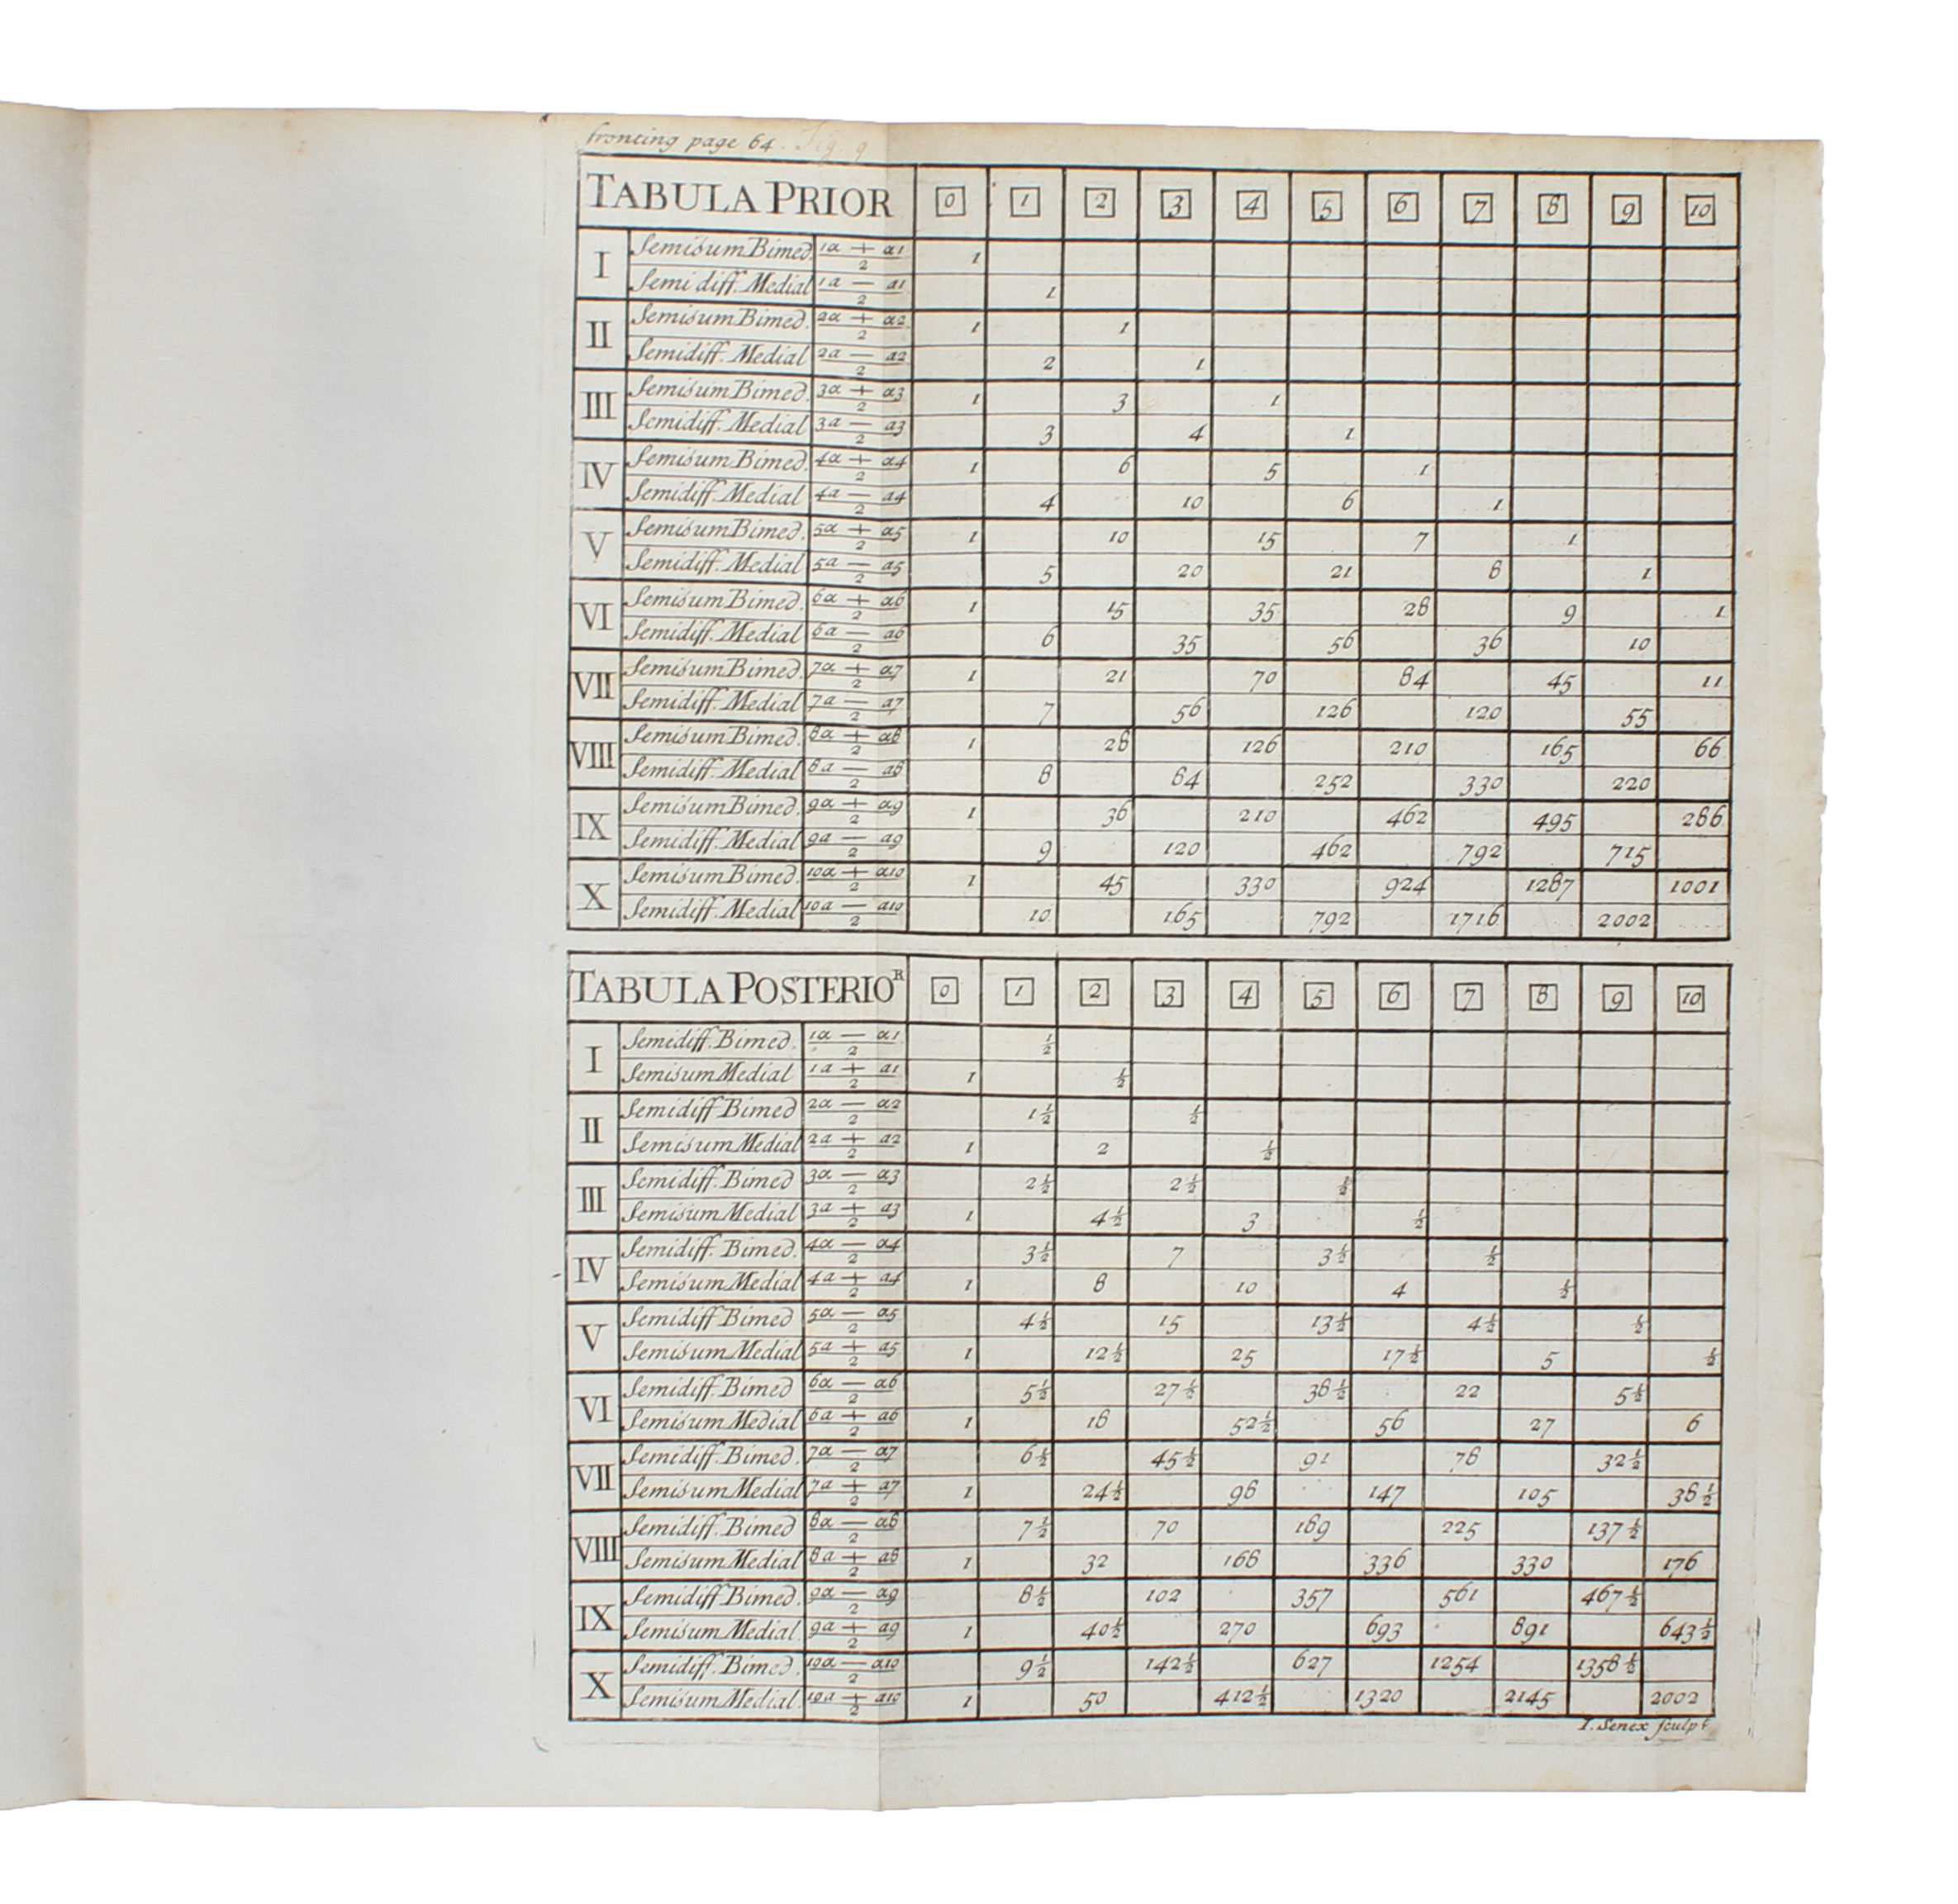 fronting page 64. Fig. 9
TABULA PRIOR 0 1 2 3 4 5 6 7 8 9 10
I Semisum Bimed. 1α + α1 / 2 1
Semidiff. Medial 1a — a1 / 2 1
II Semisum Bimed. 2α + α2 / 2 1 1
Semidiff. Medial 2a — a2 / 2 2 1
III Semisum Bimed. 3α + α3 / 2 1 3 1
Semidiff. Medial 3a — a3 / 2 3 4 1
IV Semisum Bimed. 4α + α4 / 2 1 6 5 1
Semidiff. Medial 4a — a4 / 2 4 10 6 1
V Semisum Bimed. 5α + α5 / 2 1 10 15 7 1
Semidiff. Medial 5a — a5 / 2 5 20 21 8 1
VI Semisum Bimed. 6α + α6 / 2 1 15 35 28 9 1
Semidiff. Medial 6a — a6 / 2 6 35 56 36 10
VII Semisum Bimed. 7α + α7 / 2 1 21 70 84 45 11
Semidiff. Medial 7a — a7 / 2 7 56 126 120 55
VIII Semisum Bimed. 8α + α8 / 2 1 28 126 210 165 66
Semidiff. Medial 8a — a8 / 2 8 84 252 330 220
IX Semisum Bimed. 9α + α9 / 2 1 36 210 462 495 286
Semidiff. Medial 9a — a9 / 2 9 120 462 792 715
X Semisum Bimed. 10α + α10 / 2 1 45 330 924 1287 1001
Semidiff. Medial 10a — a10 / 2 10 165 792 1716 2002
TABULA POSTERIOR 0 1 2 3 4 5 6 7 8 9 10
I Semidiff. Bimed. 1α — α1 / 2 ½
Semisum Medial 1a + a1 / 2 1 ½
II Semidiff Bimed 2α — α2 / 2 1½ ½
Semisum Medial 2a + a2 / 2 1 2 ½
III Semidiff. Bimed 3α — α3 / 2 2½ 2½ ½
Semisum Medial 3a + a3 / 2 1 4½ 3 ½
IV Semidiff. Bimed. 4α — α4 / 2 3½ 7 3½ ½
Semisum Medial 4a + a4 / 2 1 8 10 4 ½
V Semidiff Bimed 5α — α5 / 2 4½ 15 13½ 4½ ½
Semisum Medial 5a + a5 / 2 1 12½ 25 17½ 5 ½
VI Semidiff. Bimed 6α — α6 / 2 5½ 27½ 38½ 22 5½
Semisum Medial 6a + a6 / 2 1 18 52½ 56 27 6
VII Semidiff. Bimed. 7α — α7 / 2 6½ 45½ 91 78 32½
Semisum Medial 7a + a7 / 2 1 24½ 98 147 105 38½
VIII Semidiff. Bimed 8α — α8 / 2 7½ 70 189 225 137½
Semisum Medial 8a + a8 / 2 1 32 168 336 330 176
IX Semidiff. Bimed. 9α — α9 / 2 8½ 102 357 561 467½
Semisum Medial. 9a + a9 / 2 1 40½ 270 693 891 643½
X Semidiff. Bimed. 10α — α10 / 2 9½ 142½ 627 1254 1358½
Semisum Medial. 10a + a10 / 2 1 50 412½ 1320 2145 2002
I. Senex sculpt